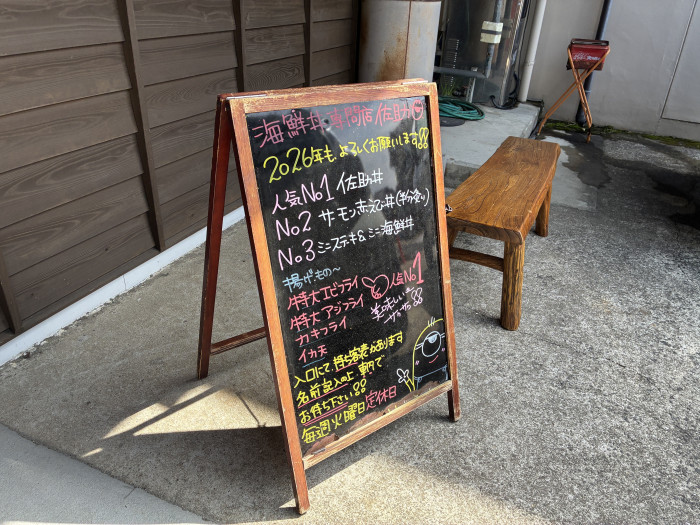 海鮮丼専門店 佐助
2026年も、よろしくお願いします!!
人気No.1 佐助丼
No.2 サーモン赤えび丼(半分盛り)
No.3 ミニステーキ&ミニ海鮮丼
揚げもの〜
特大エビフライ
人気No.1
特大アジフライ
美味しい
カキフライ
サクサク!!
イカ天
入口にて、待ち番表があります
名前記入の上、車内で
お待ち下さい!!
毎週火曜日定休日